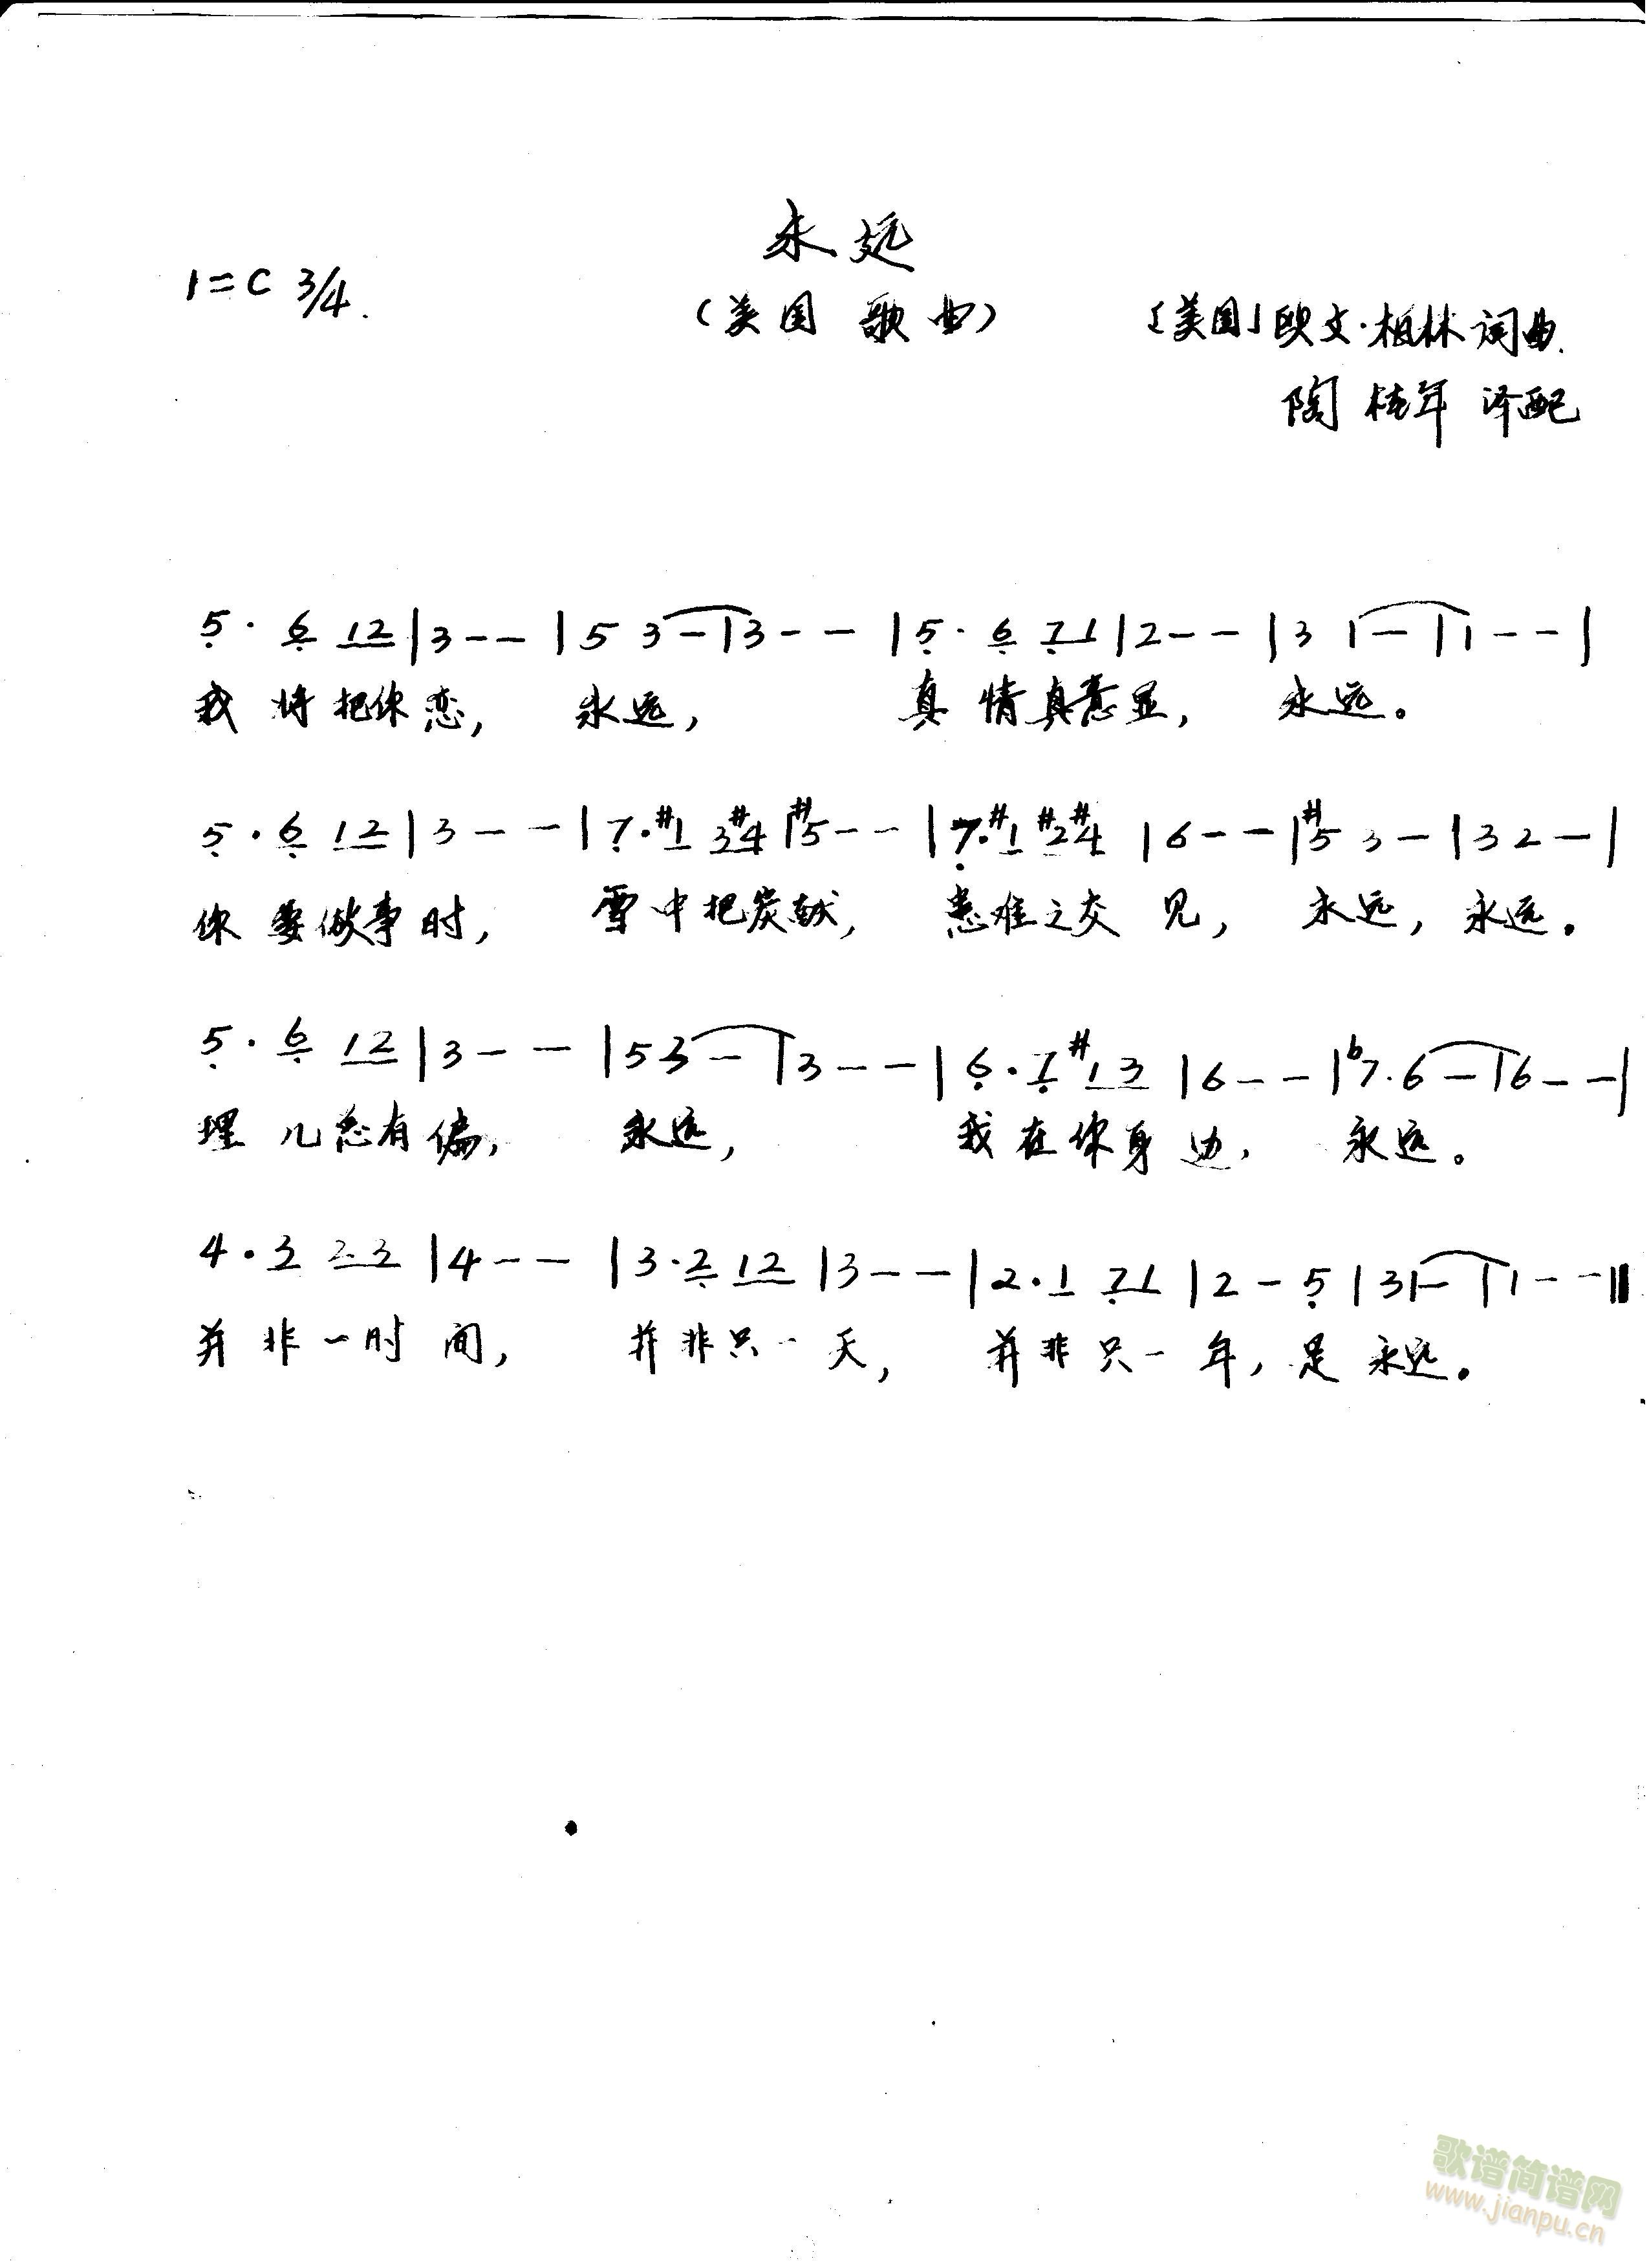 永远
1=C 3/4.
(美国 歌曲)
[美国]欧文·柏林词曲.
陶桂年 译配
5· 6 12|3--|5 3-|3--|5· 6 71|2--|3 1-|1--|
我将把你恋, 永远, 真情真意显, 永远。
5·6 12|3--|7·#1 3#4|#5--|7·#1 #2#4|6--|#5 3-|32-|
你要做事时, 雪中把炭献, 患难之交见, 永远, 永远。
5·6 12|3--|53-|3--|6·7 #13|6--|b7·6-|6--|
理儿总有偏, 永远, 我在你身边, 永远。
4·3 23|4--|3·2 12|3--|2·1 71|2-5|31-|1--||
并非一时间, 并非只一天, 并非只一年, 是永远。
歌谱简谱网
www.jianpu.cn